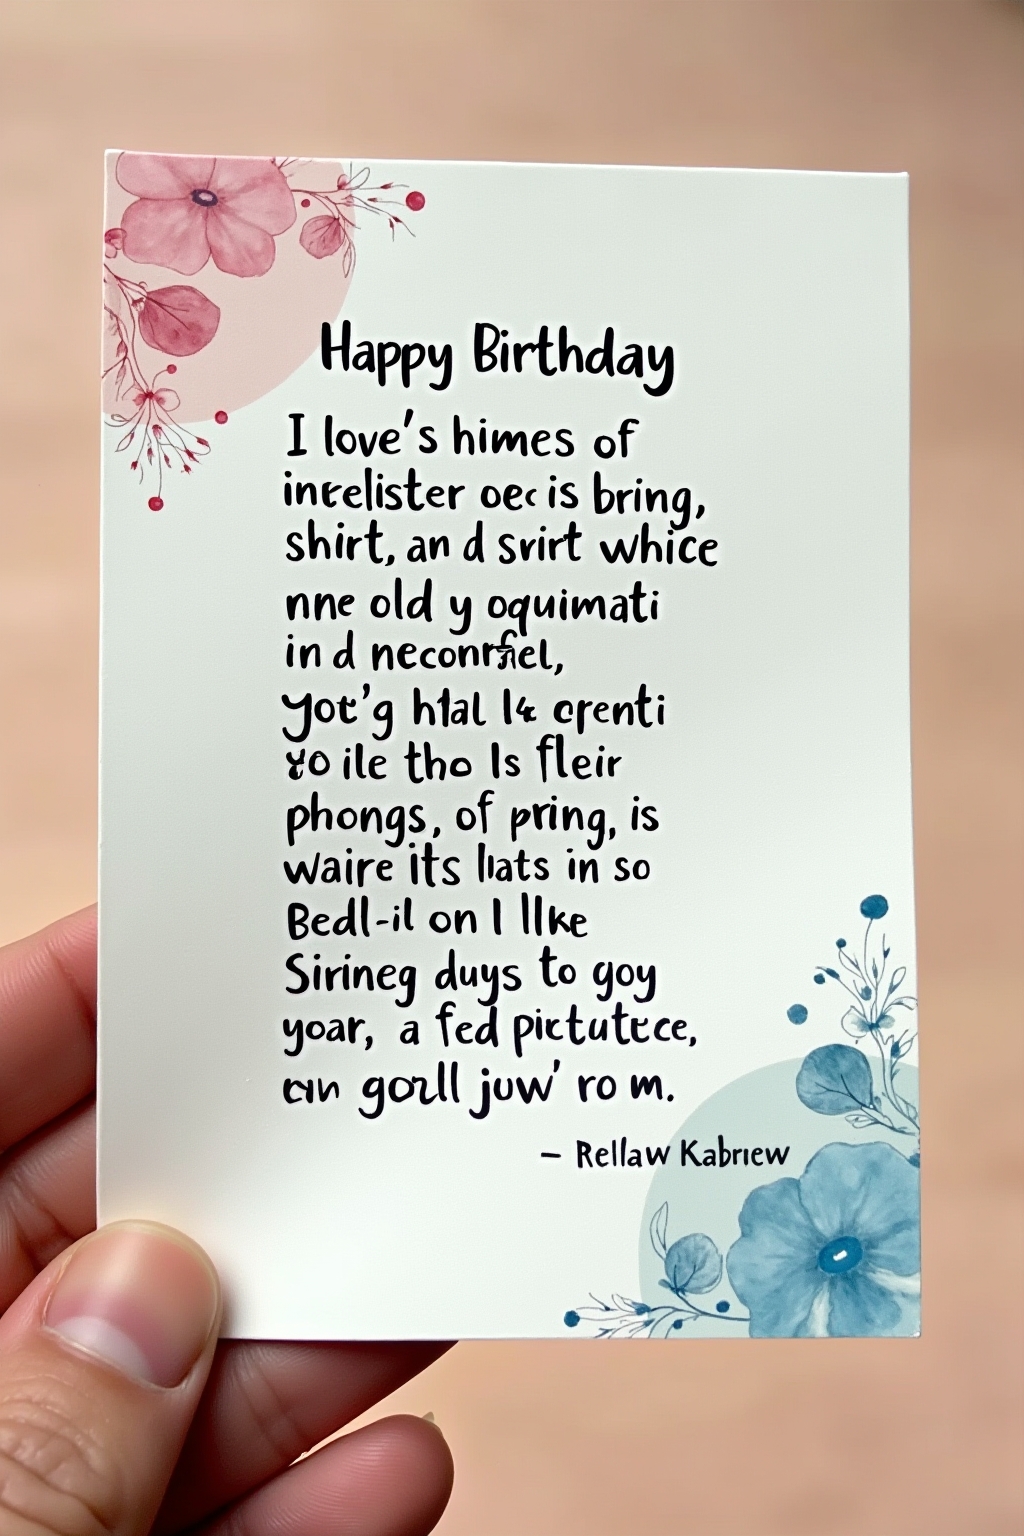 Happy Birthday
I love's himes of
is bring,
shirt, an d svirt whice
nne old y oquimati
in d
crenti
ile tho Is fleir
phongs, of pring, is
waire its liats in so
Bedl-il on I lIke
Sirineg duys to goy
yoar, a fed
juw' ro m.
– Rellaw Kabriew